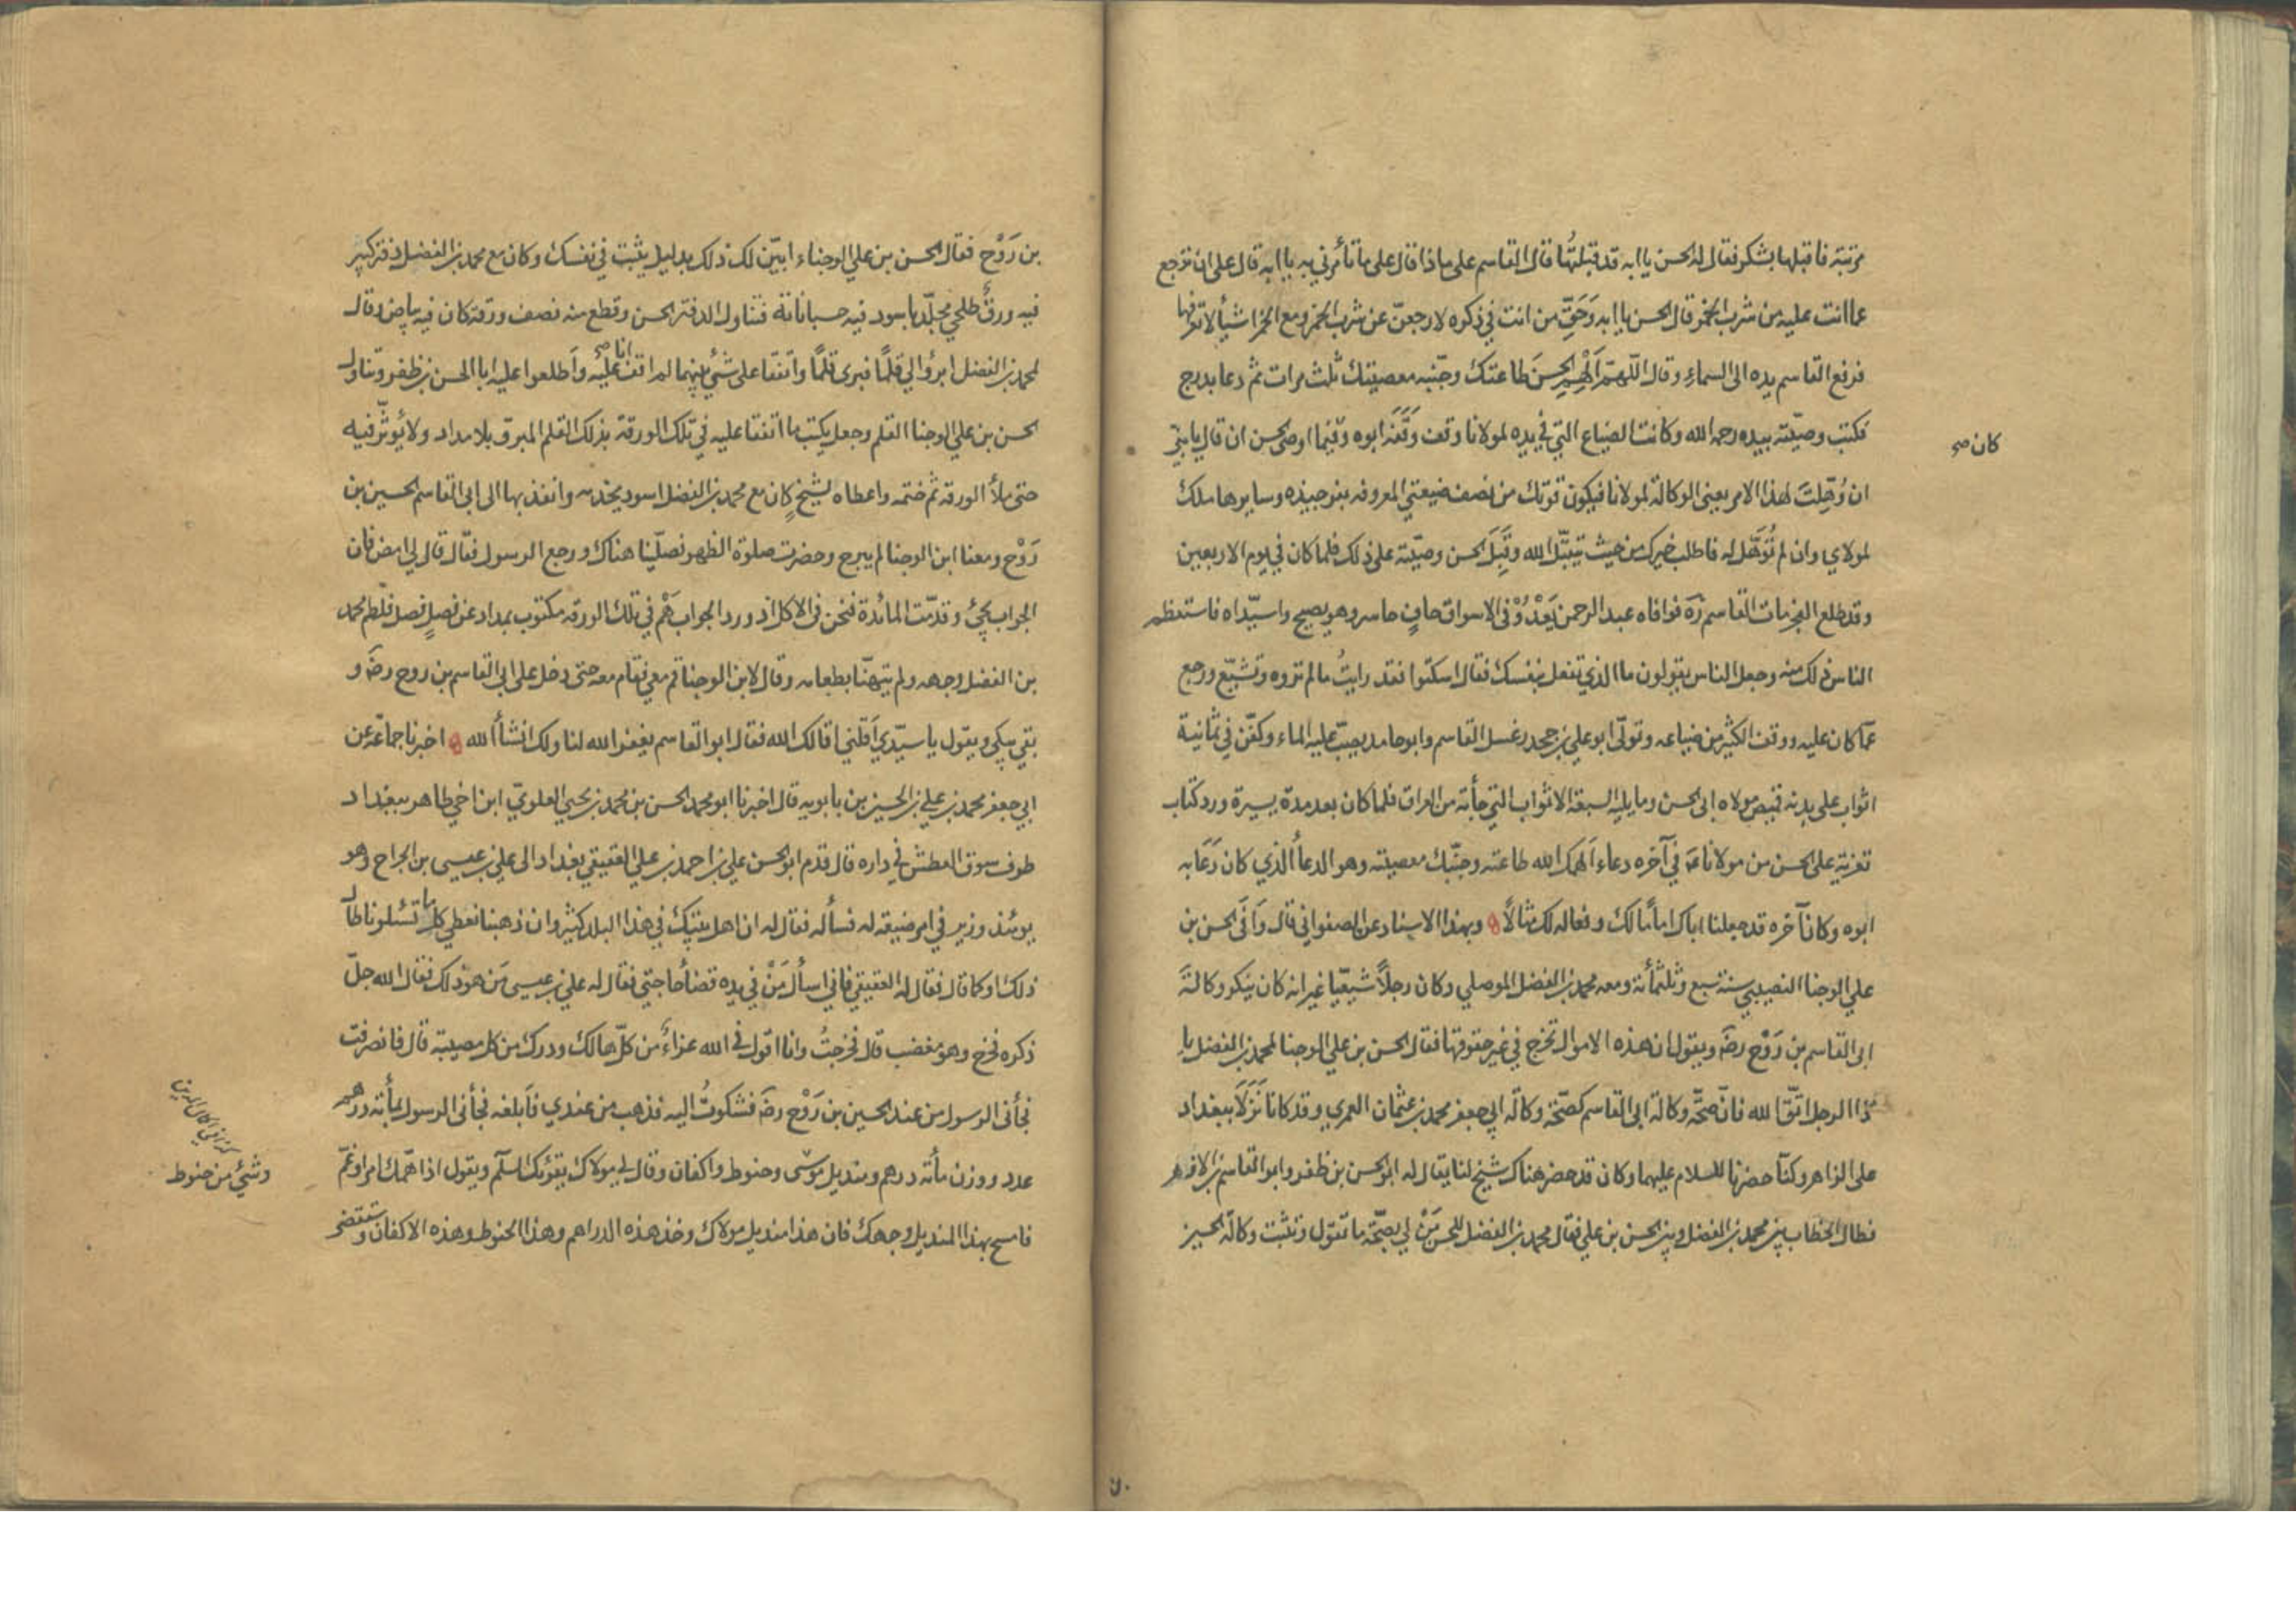 مرتبة فاقبلها بشكر فقال له الحسن يا ابه قد قبلتها قال القاسم على ماذا قال على ما تأمرني به يا ابه قال على ان ترجع
عما انت عليه من شرب الخمر قال الحسن يا ابه وَحَقِّ من انت في ذكره لارجعنّ عن شرب الخمر ومع الخمر اشيأ لا تعرفها
فرفع القاسم يده الى السماءِ وقال اللّهمّ اَلْهِمِ الحسنَ طاعتك وجنّبه معصيتك ثلث مرات ثم دعا بدرج
فكتب وصيّته بيده رحمه الله وكانت الضياع التي في يده لمولانا وقف وَقَّفَهَ ابوه وفيما اوصى الحسن ان قال يا بنيّ
كان صح
ان وُهِّلتَ لهذا الامر يعنى الوكالة لمولانا فيكون قوتك من نصف ضيعتي المعروفه بفرجيذه وسايرها ملك
لمولاي وان لم تُوَهَّل له فاطلب خيرك من حيث يتقبّل الله وقَبِلَ الحسن وصيّته على ذلك فلما كان في يوم الاربعين
وقد طلع الفجر مات القاسم رَه فوافاه عبد الرحمن يَعْدُوْ فى الاسواق حافٍ حاسر وهو يصيح واسيّداه فاستعظم
الناس ذلك منه وجعل الناس يقولون ما الذي تفعل بنفسك فقال اسكتوا فقد رايتُ ما لم تروه وتشيّع ورجع
عمّا كان عليه ووقف الكثير من ضياعه وتولّى ابو علي بن جحدر غسل القاسم وابو حامد يصبّ عليه الماء وكفّن في ثمانية
اثواب على بدنه قميص مولاه ابى الحسن وما يليه السبعة الاثواب التي جأته من العراق فلما كان بعد مدة يسيرة ورد كتاب
تعزية على الحسن من مولانا عَ في آخره دعاء اَلهمك الله طاعته وجنّبك معصيته وهو الدعأ الّذي كان دَعَا به
ابوه وكان آخره قد جعلنا اباك امامًا لك وفعاله لك مثالًا ه وبهذا الاسناد عن الصفواني قال وَافَى الحسن بن
علي الوجنا النصيبي سنة سبع وثلثمأئة ومعه محمد بن الفضل الموصلي وكان رجلًا شيعيّا غير انه كان ينكر وكالةَ
ابى القاسم بن رَوْح رضَ ويقول ان هذه الاموال تخرج في غير حقوقها فقال الحسن بن علي الوجنا لمحمد بن الفضل يا
ذا الرجل اتّق الله فانّ صحّة وكالة ابى القاسم كصحّة وكالة ابي جعفر محمد بن عثمان العمري وقد كانا نَزَلَا ببغداد
على الزاهر وكنّا حضرنا للسلام عليهما وكان قد حضر هناك شيخ لنا يقال له ابو الحسن بن ظفر وابو القاسم بن الازهر
فطال الخطاب بين محمد بن الفضل وبين الحسن بن علي فقال محمد بن الفضل للحسن مَنْ لي بصحّة ما تقول وتثبت وكالة الحسين
بن رَوْح فقال الحسن بن علي الوجناء ابيّن لك ذلك بدليل يثبت في نفسك وكان مع محمد بن الفضل دفتر كبير
فيه ورقٌ طلحي مجلّد باسود فيه حسباناته فتناول الدفتر الحسن وقطع منه نصف ورقة كان فيه بياض وقال
لمحمد بن الفضل ابروا لي قلمًا فبرى قلمًا واتّفقا على شئ بينهما لم اقف انا صح عليه واَطلعوا عليه ابا الحسن بن ظفر وتناول
الحسن بن علي الوجنا القلم وجعل يكتب ما اتفقا عليه في تلك الورقة بذلك القلم المبرىّ بلا مداد ولا يُوثّر فيه
حتى ملأ الورقة ثم ختمه واعطاه لشيخٍ كان مع محمد بن الفضل اسود يخدمه وانفذ بها الى ابى القاسم الحسين بن
رَوْح ومعنا ابن الوجنا لم يبرح وحضرت صلوة الظهر فصلّينا هناك ورجع الرسول فقال قال لي امض فان
الجواب يجئ وقدّمت المائدة فنحن فى الاكل اذ ورد الجواب في تلك الورقه مكتوب بمداد عن فصلٍ فصل فلطم محمد
بن الفضل وجهه ولم يتهنّأ بطعامه وقال لابن الوجنا قم معي فقام معه حتى دخل على ابى القاسم بن روح رضَ و
بقي يبكي ويقول يا سيّدي اَقلني اقالك الله فقال ابو القاسم يغفر الله لنا ولك انشأ الله ه اخبرنا جماعة عن
ابي جعفر محمد بن علي بن الحسين بن بابويه قال اخبرنا ابو محمد الحسن بن محمد بن يحيى العلويّ ابن اخي طاهر ببغداد
طرف سوق العطش في داره قال قدم ابو الحسن علي بن احمد بن علي العقيقي بغداد الى علي بن عيسى بن الجراح وهو
يومئذ وزير في امر ضيعة له فسأله فقال له ان اهل بيتك في هذا البلد كثير وان ذهبنا نعطي كل ما تسئلونا طال
ذلك او كما قال فقال له العقيقي فاني اسأل مَنْ في يده قضأ حاجتي فقال له علي بن عيسى مَن هو ذلك فقال الله جلّ
ذكره فخرج وهو مغضب قال فخرجتُ وانا اقول في الله عزاءٌ من كلّ هالك ودرك من كل مصيبة قال فانصرفت
فجأنى الرسول من عند الحسين بن رَوْح رضَ فشكوتُ اليه فذهب من عندي فاَبلغه فجأنى الرسول بمأئة درهم
عدد ووزن مأئة درهم ومنديل وحنوط واكفان وقال لي مولاك يقرئك السلم ويقول اذا اهمّك امر او غمّ
وشئ من حنوط
فامسح بهذا المنديل وجهك فان هذا منديل مولاك وخذ هذه الدراهم وهذا الحنوط وهذه الاكفان وستقضى